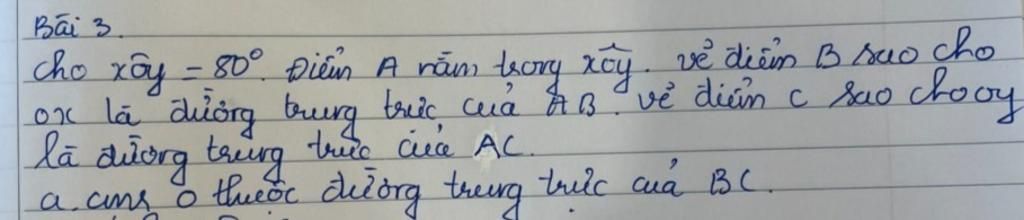 Bài 3.
Cho xÔy = 80°. Điểm A nằm trong xÔy. vẽ điểm B sao cho
ox là đường trung trực của AB. vẽ điểm C sao cho oy
là đường trung trực của AC.
a. cmr O thuộc đường trung trực của BC.